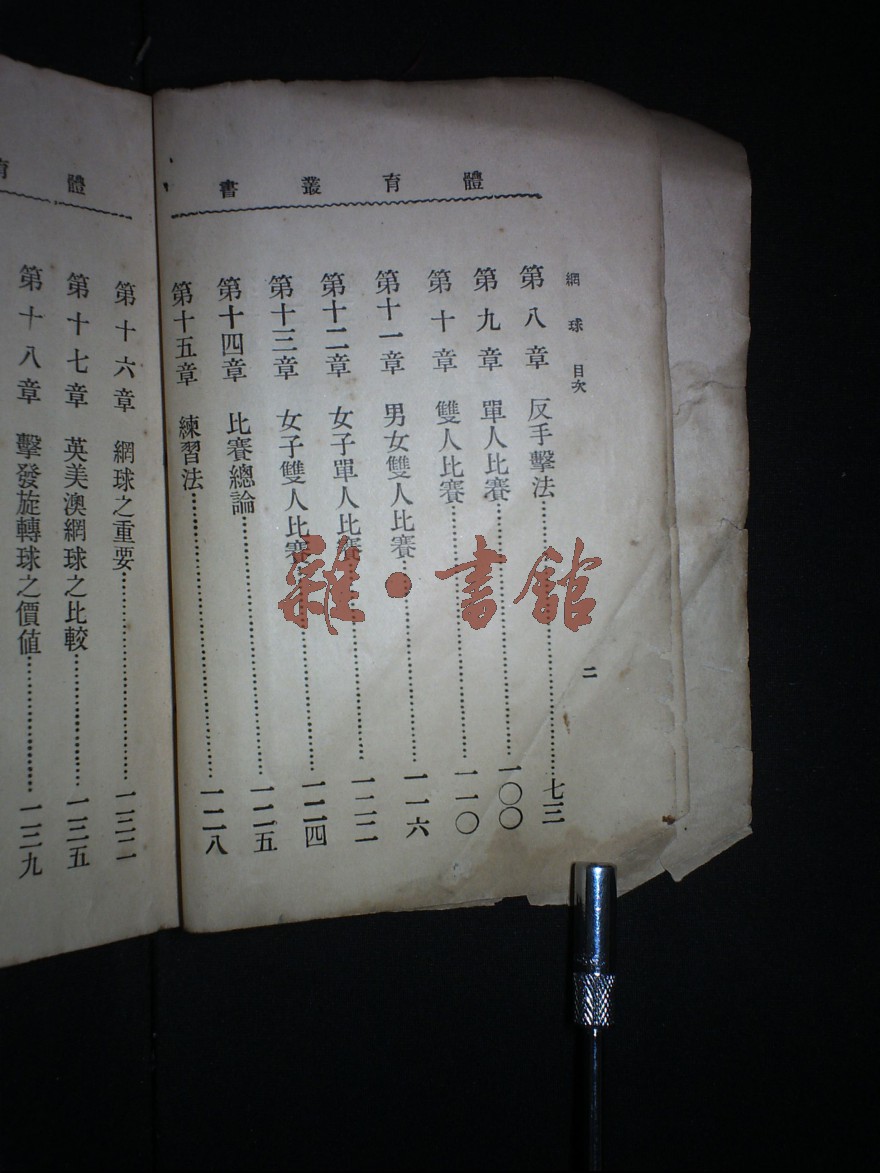 體育叢書
網球 目次
二
第八章 反手擊法 七三
第九章 單人比賽 一〇〇
第十章 雙人比賽 一一〇
第十一章 男女雙人比賽 一一六
第十二章 女子單人比賽 一二二
第十三章 女子雙人比賽 一二四
第十四章 比賽總論 一二五
第十五章 練習法 一二八
體育
第十六章 網球之重要 一三二
第十七章 英美澳網球之比較 一三五
第十八章 擊發旋轉球之價值 一三九
雜·書館